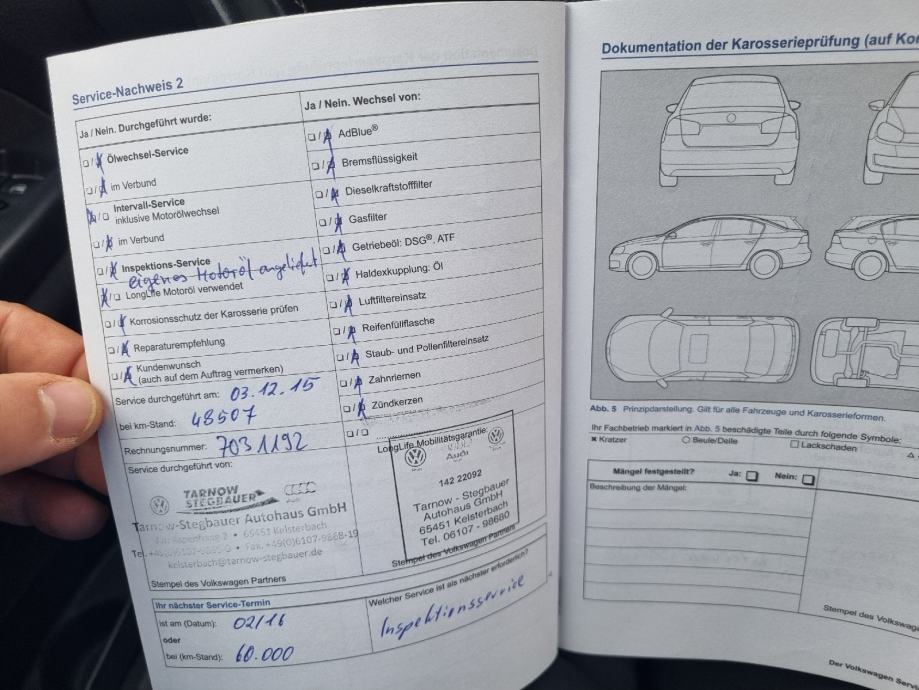 Service-Nachweis 2
Ja / Nein. Durchgeführt wurde:
Ölwechsel-Service
im Verbund
Intervall-Service
inklusive Motorölwechsel
im Verbund
Inspektions-Service
eigenes Motoröl angeliefert
LongLife Motoröl verwendet
Korrosionsschutz der Karosserie prüfen
Reparaturempfehlung
Kundenwunsch
(auch auf dem Auftrag vermerken)
Service durchgeführt am: 03.12.15
bei km-Stand: 48507
Rechnungsnummer: 7031192
Service durchgeführt von:
TARNOW
STEGBAUER
Audi
Tarnow-Stegbauer Autohaus GmbH
65451 Kelsterbach
Fax. +49(0)6107-9868-19
kelsterbach@tarnow-stegbauer.de
Stempel des Volkswagen Partners
Ja / Nein. Wechsel von:
AdBlue®
Bremsflüssigkeit
Dieselkraftstofffilter
Gasfilter
Getriebeöl: DSG®, ATF
Haldexkupplung: Öl
Luftfiltereinsatz
Reifenfüllflasche
Staub- und Pollenfiltereinsatz
Zahnriemen
Zündkerzen
LongLife Mobilitätsgarantie:
Audi
142 22092
Tarnow - Stegbauer
Autohaus GmbH
65451 Kelsterbach
Tel. 06107 - 98680
Stempel des Volkswagen Partners
Ihr nächster Service-Termin
ist am (Datum): 02/16
oder
bei (km-Stand): 60.000
Welcher Service ist als nächster erforderlich?
Inspektionsservice
Dokumentation der Karosserieprüfung (auf
Abb. 5 Prinzipdarstellung. Gilt für alle Fahrzeuge und Karosserieformen.
Ihr Fachbetrieb markiert in Abb. 5 beschädigte Teile durch folgende Symbole:
Kratzer Beule/Delle Lackschaden
Mängel festgestellt? Ja: Nein:
Beschreibung der Mängel:
Stempel des Volkswagen
Der Volkswagen